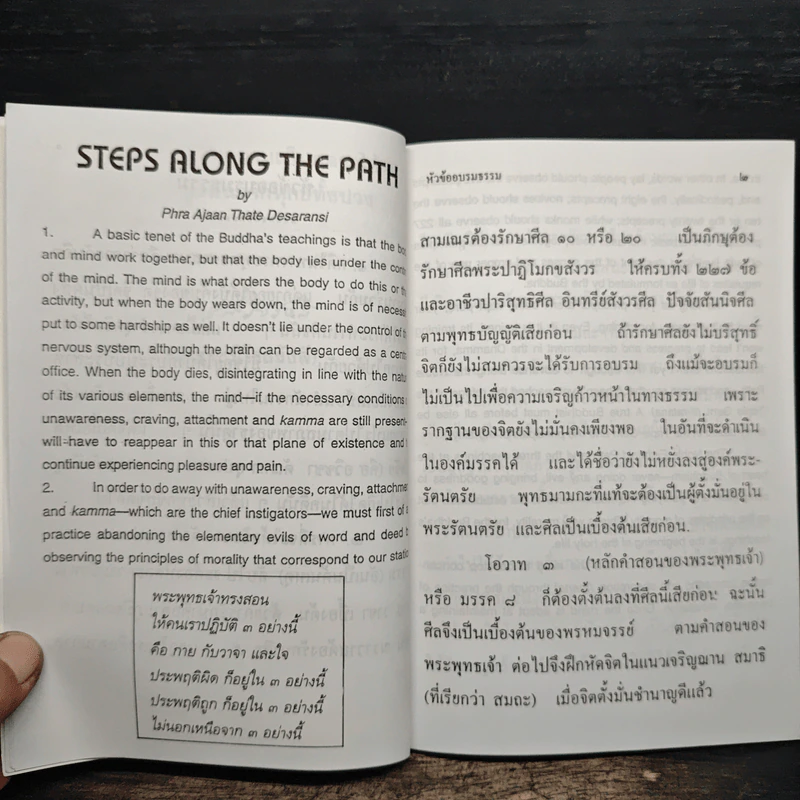 STEPS ALONG THE PATH
by
Phra Ajaan Thate Desaransi
1. A basic tenet of the Buddha's teachings is that the
and mind work together, but that the body lies under the
of the mind. The mind is what orders the body to do this or
activity, but when the body wears down, the mind is of
put to some hardship as well. It doesn't lie under the control of
nervous system, although the brain can be regarded as a
office. When the body dies, disintegrating in line with the
of its various elements, the mind—if the necessary conditions
unawareness, craving, attachment and kamma are still present-
will-have to reappear in this or that plane of existence and
continue experiencing pleasure and pain.
2. In order to do away with unawareness, craving,
and kamma—which are the chief instigators—we must first of
practice abandoning the elementary evils of word and deed
observing the principles of morality that correspond to our
พระพุทธเจ้าทรงสอน
ให้คนเราปฏิบัติ ๓ อย่างนี้
คือ กาย กับวาจา และใจ
ประพฤติผิด ก็อยู่ใน ๓ อย่างนี้
ประพฤติถูก ก็อยู่ใน ๓ อย่างนี้
ไม่นอกเหนือจาก ๓ อย่างนี้
หัวข้ออบรมธรรม ๒
สามเณรต้องรักษาศีล ๑๐ หรือ ๒๐ เป็นภิกษุต้อง
รักษาศีลพระปาฏิโมกขสังวร ให้ครบทั้ง ๒๒๗ ข้อ
และอาชีวปาริสุทธิศีล อินทรีย์สังวรศีล ปัจจัยสันนิจศีล
ตามพุทธบัญญัติเสียก่อน ถ้ารักษาศีลยังไม่บริสุทธิ์
จิตก็ยังไม่สมควรจะได้รับการอบรม ถึงแม้จะอบรมก็
ไม่เป็นไปเพื่อความเจริญก้าวหน้าในทางธรรม เพราะ
รากฐานของจิตยังไม่มั่นคงเพียงพอ ในอันที่จะดำเนิน
ในองค์มรรคได้ และได้ชื่อว่ายังไม่หยั่งลงสู่องค์พระ-
รัตนตรัย พุทธมามกะที่แท้จะต้องเป็นผู้ตั้งมั่นอยู่ใน
พระรัตนตรัย และศีลเป็นเบื้องต้นเสียก่อน.
โอวาท ๓ (หลักคำสอนของพระพุทธเจ้า)
หรือ มรรค ๘ ก็ต้องตั้งต้นลงที่ศีลนี้เสียก่อน ฉะนั้น
ศีลจึงเป็นเบื้องต้นของพรหมจรรย์ ตามคำสอนของ
พระพุทธเจ้า ต่อไปจึงฝึกหัดจิตในแนวเจริญฌาน สมาธิ
(ที่เรียกว่า สมถะ) เมื่อจิตตั้งมั่นชำนาญดีแล้ว